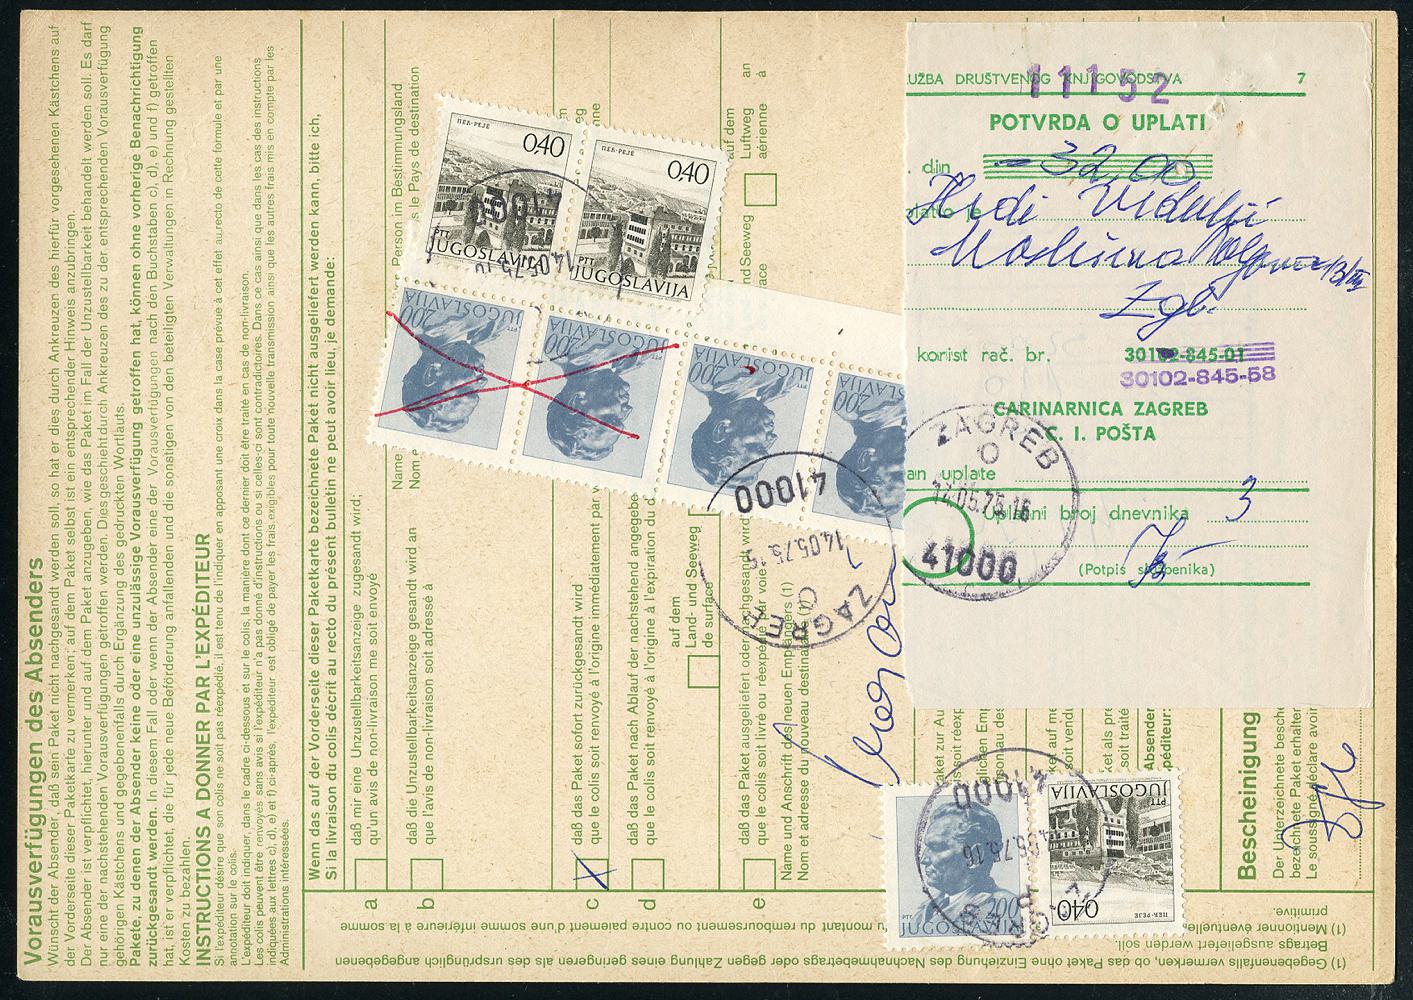 Vorausverfügungen des Absenders
Wünscht der Absender, daß sein Paket nicht nachgesandt werden soll, so hat er dies durch Ankreuzen des hierfür vorgesehenen Kästchens auf
der Vorderseite dieser Paketkarte zu vermerken; auf dem Paket selbst ist ein entsprechender Hinweis anzubringen.
Der Absender ist verpflichtet, hierunter und auf dem Paket anzugeben, wie das Paket im Fall der Unzustellbarkeit behandelt werden soll. Es darf
nur eine der nachstehenden Vorausverfügungen getroffen werden. Dies geschieht durch Ankreuzen des zu der entsprechenden Vorausverfügung
gehörigen Kästchens und gegebenenfalls durch Ergänzung des gedruckten Wortlauts.
Pakete, zu denen der Absender keine oder eine unzulässige Vorausverfügung getroffen hat, können ohne vorherige Benachrichtigung
zurückgesandt werden. In diesem Fall oder wenn der Absender eine der Vorausverfügungen nach den Buchstaben c), d), e) und f) getroffen
hat, ist er verpflichtet, die für jede neue Beförderung anfallenden und die sonstigen von den beteiligten Verwaltungen in Rechnung gestellten
Kosten zu bezahlen.
INSTRUCTIONS A DONNER PAR L'EXPÉDITEUR
Si l'expéditeur désire que son colis ne soit pas réexpédié, il est tenu de l'indiquer en apposant une croix dans la case prévue à cet effet au recto de cette formule et par une
annotation sur le colis.
L'expéditeur doit indiquer, dans le cadre ci-dessous et sur le colis, la manière dont ce dernier doit être traité en cas de non-livraison.
Les colis peuvent être renvoyés sans avis si l'expéditeur n'a pas donné d'instructions ou si celles-ci sont contradictoires. Dans ce cas ainsi que dans les cas des instructions
indiquées aux lettres c), d), e) et f) ci-après, l'expéditeur est obligé de payer les frais exigibles pour toute nouvelle transmission ainsi que les autres frais mis en compte par les
Administrations intéressées.
Wenn das auf der Vorderseite dieser Paketkarte bezeichnete Paket nicht ausgeliefert werden kann, bitte ich,
Si la livraison du colis décrit au recto du présent bulletin ne peut avoir lieu, je demande:
a
daß mir eine Unzustellbarkeitsanzeige zugesandt wird;
qu'un avis de non-livraison me soit envoyé
b
daß die Unzustellbarkeitsanzeige gesandt wird an
que l'avis de non-livraison soit adressé à
Name
Nom
Person im Bestimmungsland
le Pays de destination
c
daß das Paket sofort zurückgesandt wird
que le colis soit renvoyé à l'origine immédiatement par
d
daß das Paket nach Ablauf der nachstehend angegebe
que le colis soit renvoyé à l'origine à l'expiration du d
auf dem
Land- und Seeweg
de surface
e
daß das Paket ausgeliefert oder nachgesandt wird
que le colis soit livré ou réexpédié par voie
nd Seeweg
face
auf dem
Luftweg
aérienne
an
à
Name und Anschrift des neuen Empfängers (1)
Nom et adresse du nouveau destinata
0,40
ПЕЋ-PEJË
PTT
JUGOSLAVIJA
0,40
ПЕЋ-PEJË
PTT
JUGOSLAVIJA
PTT
JUGOSLAVIJA
200
JUGOSLAVIJA
200
PTT
JUGOSLAVIJA
200
JUGOSLAVIJA
200
41000
14.05.75.16
ZAGREB
UŽBA DRUŠTVENOG KNJIGOVODSTVA
7
11152
POTVRDA O UPLATI
din
=32,00
platio je
Zgb.
korist rač. br.
30102-845-01
30102-845-58
CARINARNICA ZAGREB
C. I. POŠTA
ZAGREB
14.05.75.16
41000
an uplate
Uplatni broj dnevnika
3
(Potpis službenika)
Paket zur Au
soit réexp
Absender
péditeur:
PTT
200
JUGOSLAVIJA
0,40
ПЕЋ-PEJË
PTT
JUGOSLAVIJA
41000
14.05.75.16
Bescheinigung
Der Unterzeichnete besche
bezeichnete Paket erhalten
Le soussigné déclare avoir
(1) Gegebenenfalls vermerken, ob das Paket ohne Einziehung des Nachnahmebetrags oder gegen Zahlung eines geringeren als des ursprünglich angegebenen
Betrags ausgeliefert werden soll.
(1) Mentionner éventuelle
u montant du remboursement ou contre paiement d'une somme inférieure à la somme
primitive.